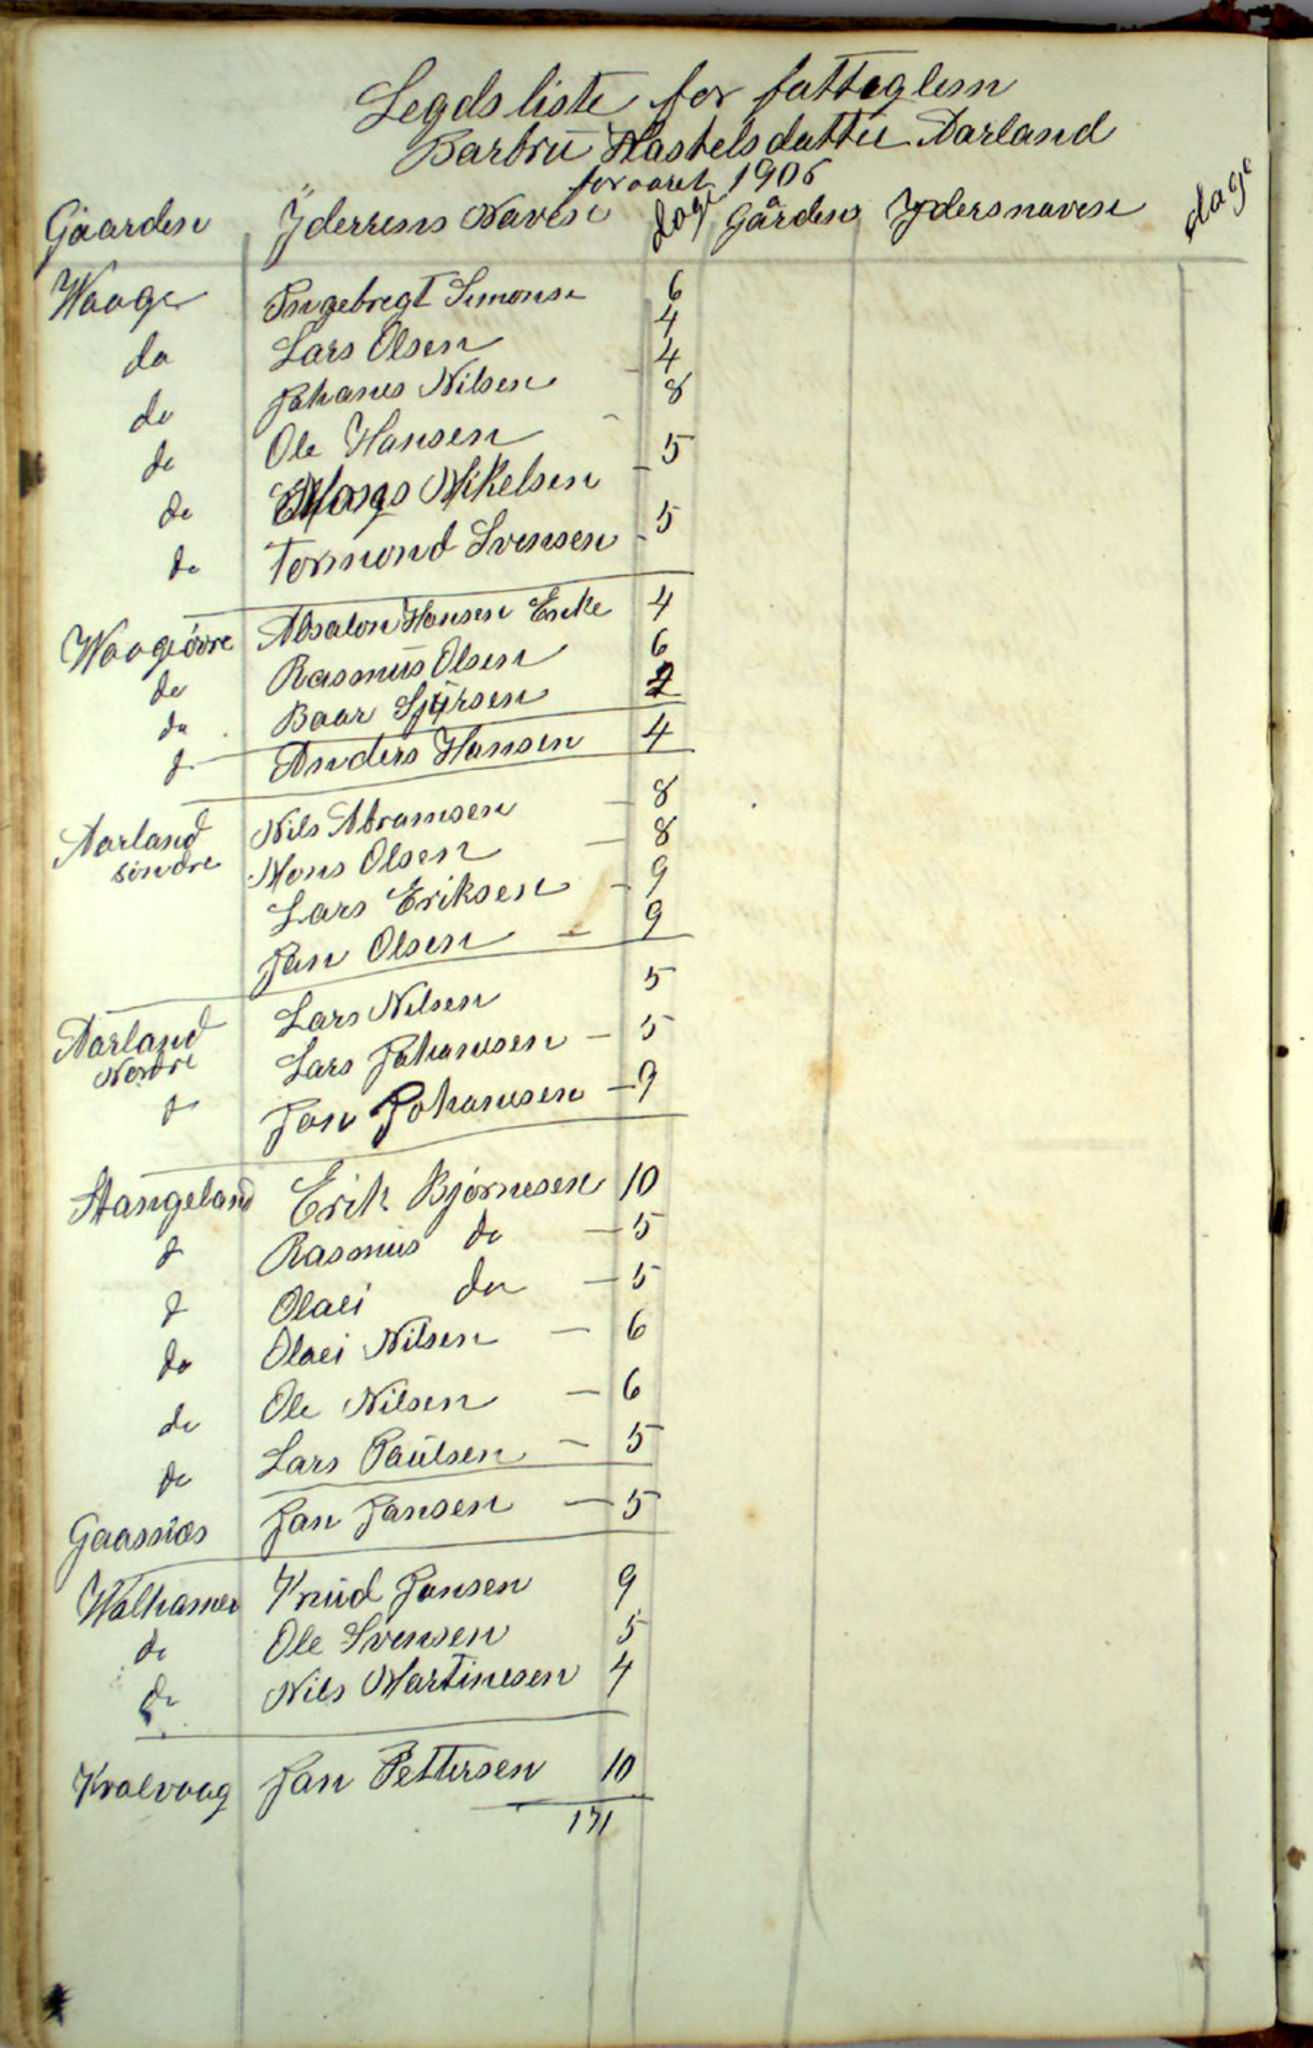 Legdsliste for fatteglem
Barbru Haskelsdatter Aarland
for aaret 1906
Gaarden Yderrens Navne dage Gården Ydersnavne dage
Waage Ingebregt Simonse 6
do Lars Olsen 4
do Johanes Nilsen - 4
do Ole Hansen - 8
do Mons Mikelsen - 5
do Tormond Svensen - 5
Waageövre Absalon Hansen Enke 4
do Rasmus Olsen 6
do Baar Sjursen 2
d Anders Hansen 4
Aarland Nils Abramsen - 8
söndre Mons Olsen - 8
Lars Eriksen - 9
Jan Olsen - 9
Aarland Lars Nilsen 5
Nordre Lars Johanesen - 5
d Jan Johanesen - 9
Stangeland Erik Bjørnesen 10
d Rasmus do - 5
d Olai do - 5
do Olai Nilsen - 6
do Ole Nilsen - 6
do Lars Paulsen - 5
Gaasnæs Jan Jansen - 5
Walhamer Knud Jansen 9
do Ole Svensen 5
do Nils Martinesen 4
Kvalvaag Jan Pettersen 10
171